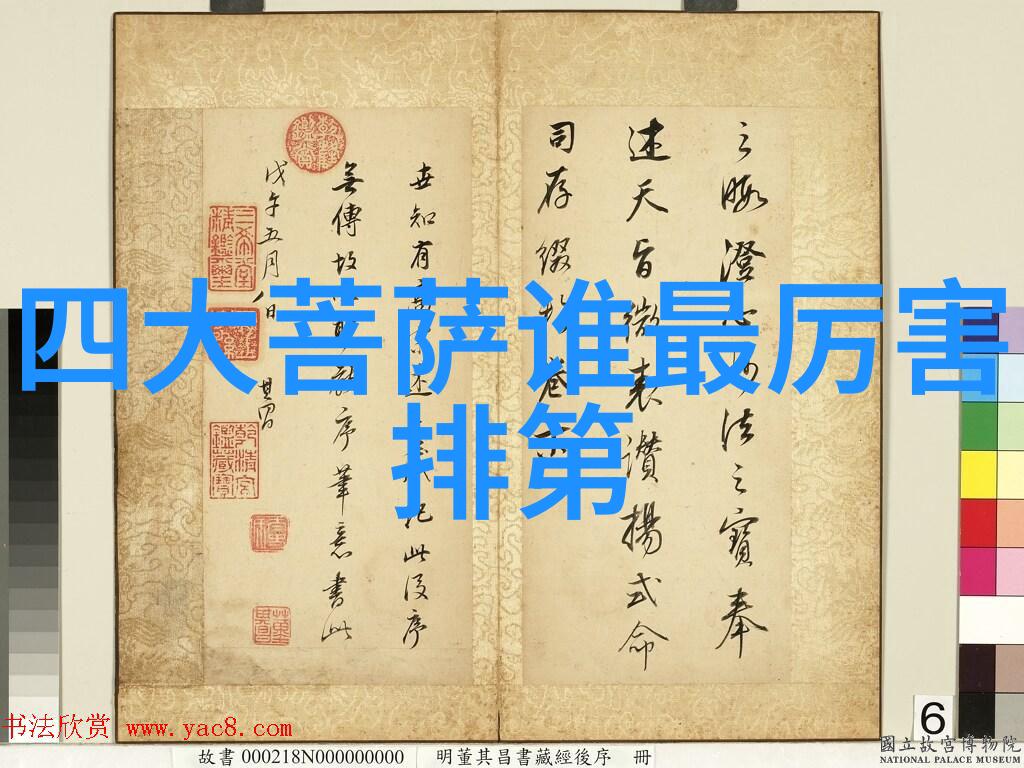 四大菩萨谁最厉害
排第
之暇澄心法之寶奉
述天旨微表讚揚式命
司存綴於卷
世知有述記此後序
無傳故序筆意書此
戊午五月八日
其昌
书法欣赏 www.yac8.com
6
故書 000218N000000000 明董其昌書藏經後序 冊
國立故宮博物院
NATIONAL PALACE MUSEUM